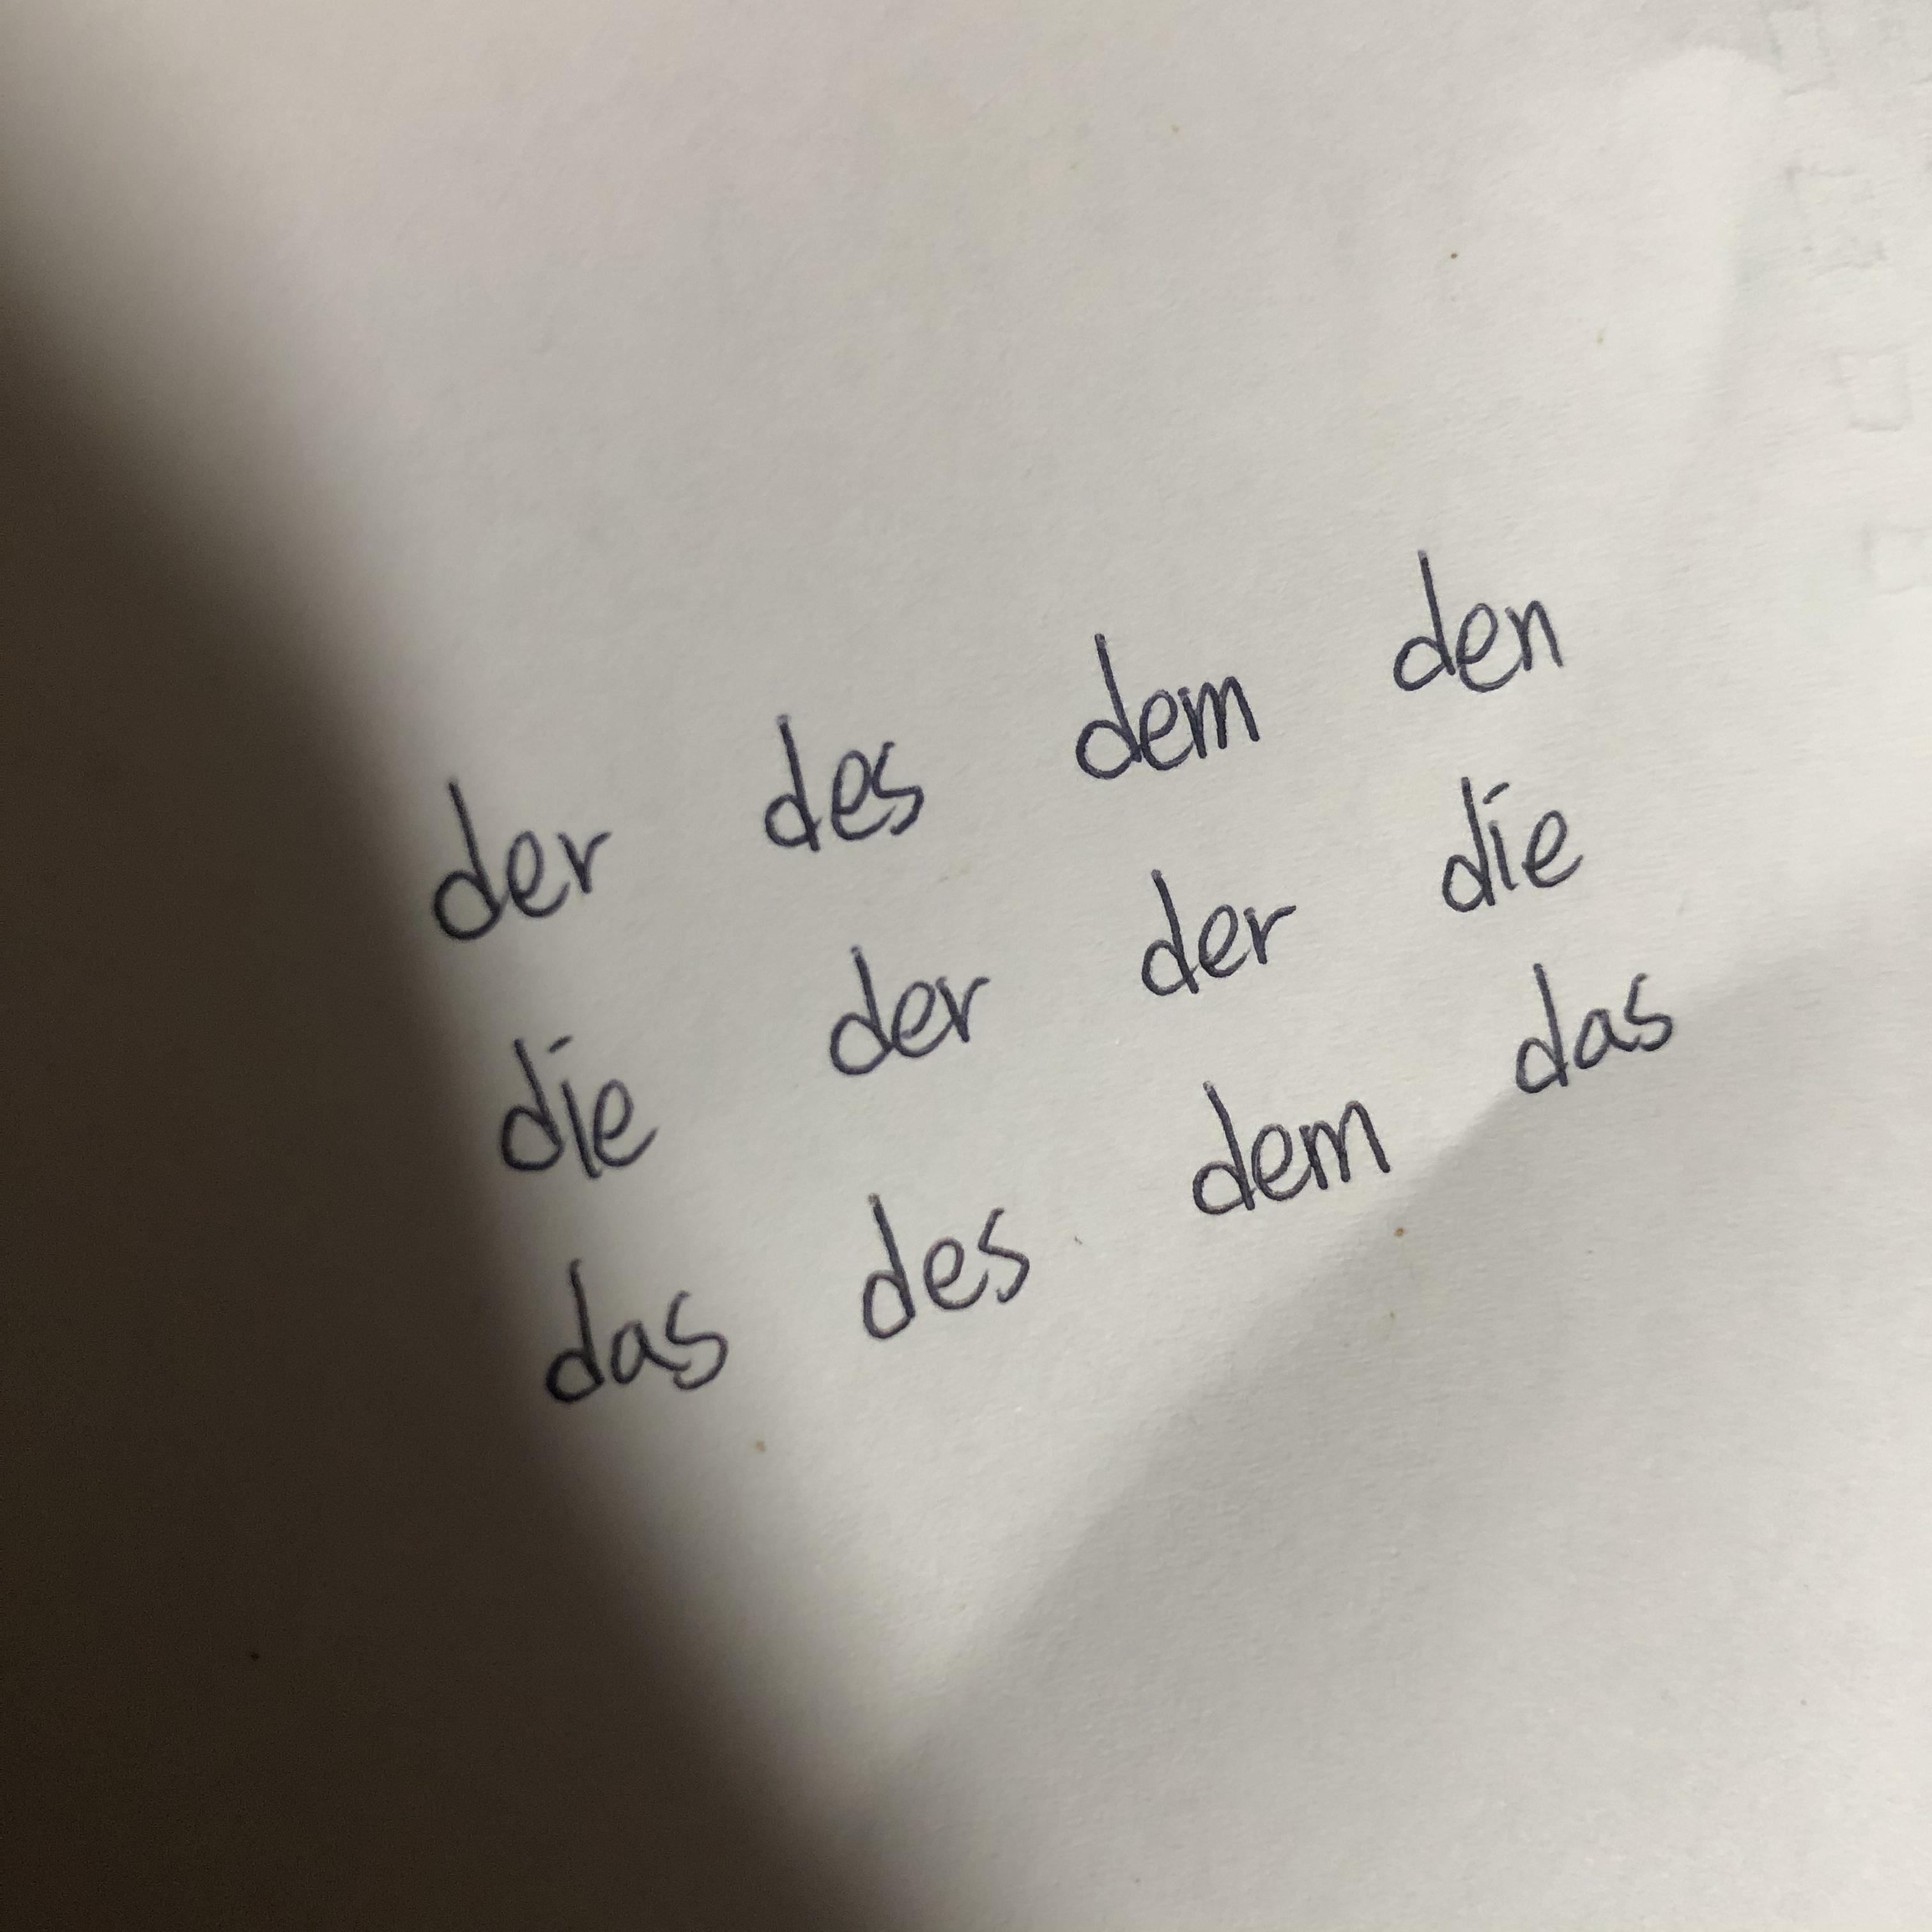 der des dem den
die der der die
das des dem das